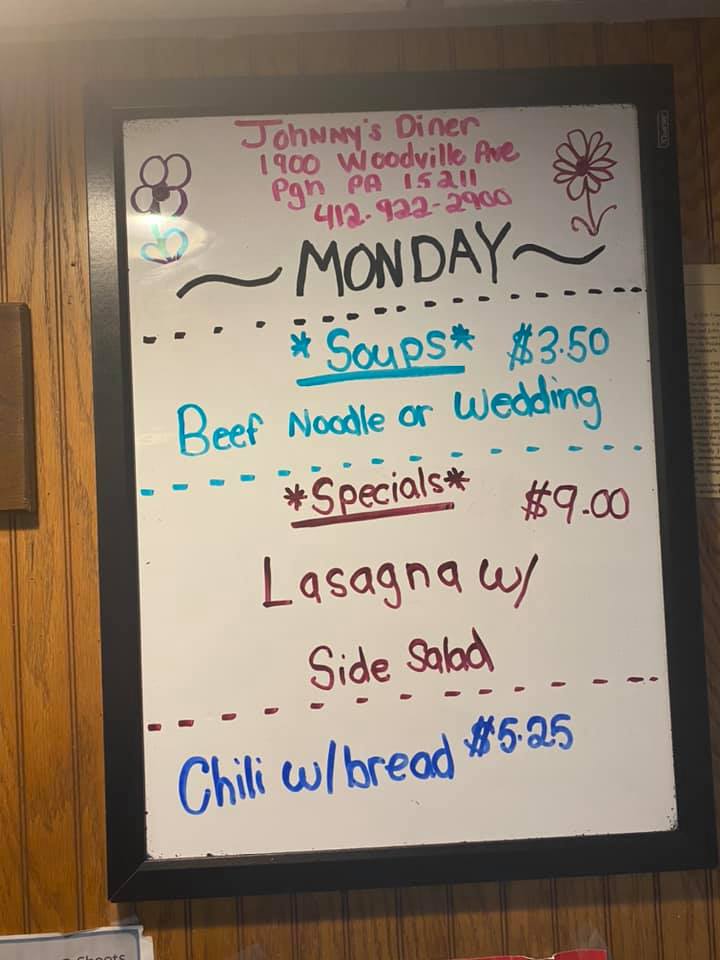 Johnny's Diner
1900 Woodville Ave
Pgh PA 15211
412-922-2900
~MONDAY~
*Soups* $3.50
Beef Noodle or Wedding
*Specials* $9.00
Lasagna w/
Side Salad
Chili w/bread $5.25